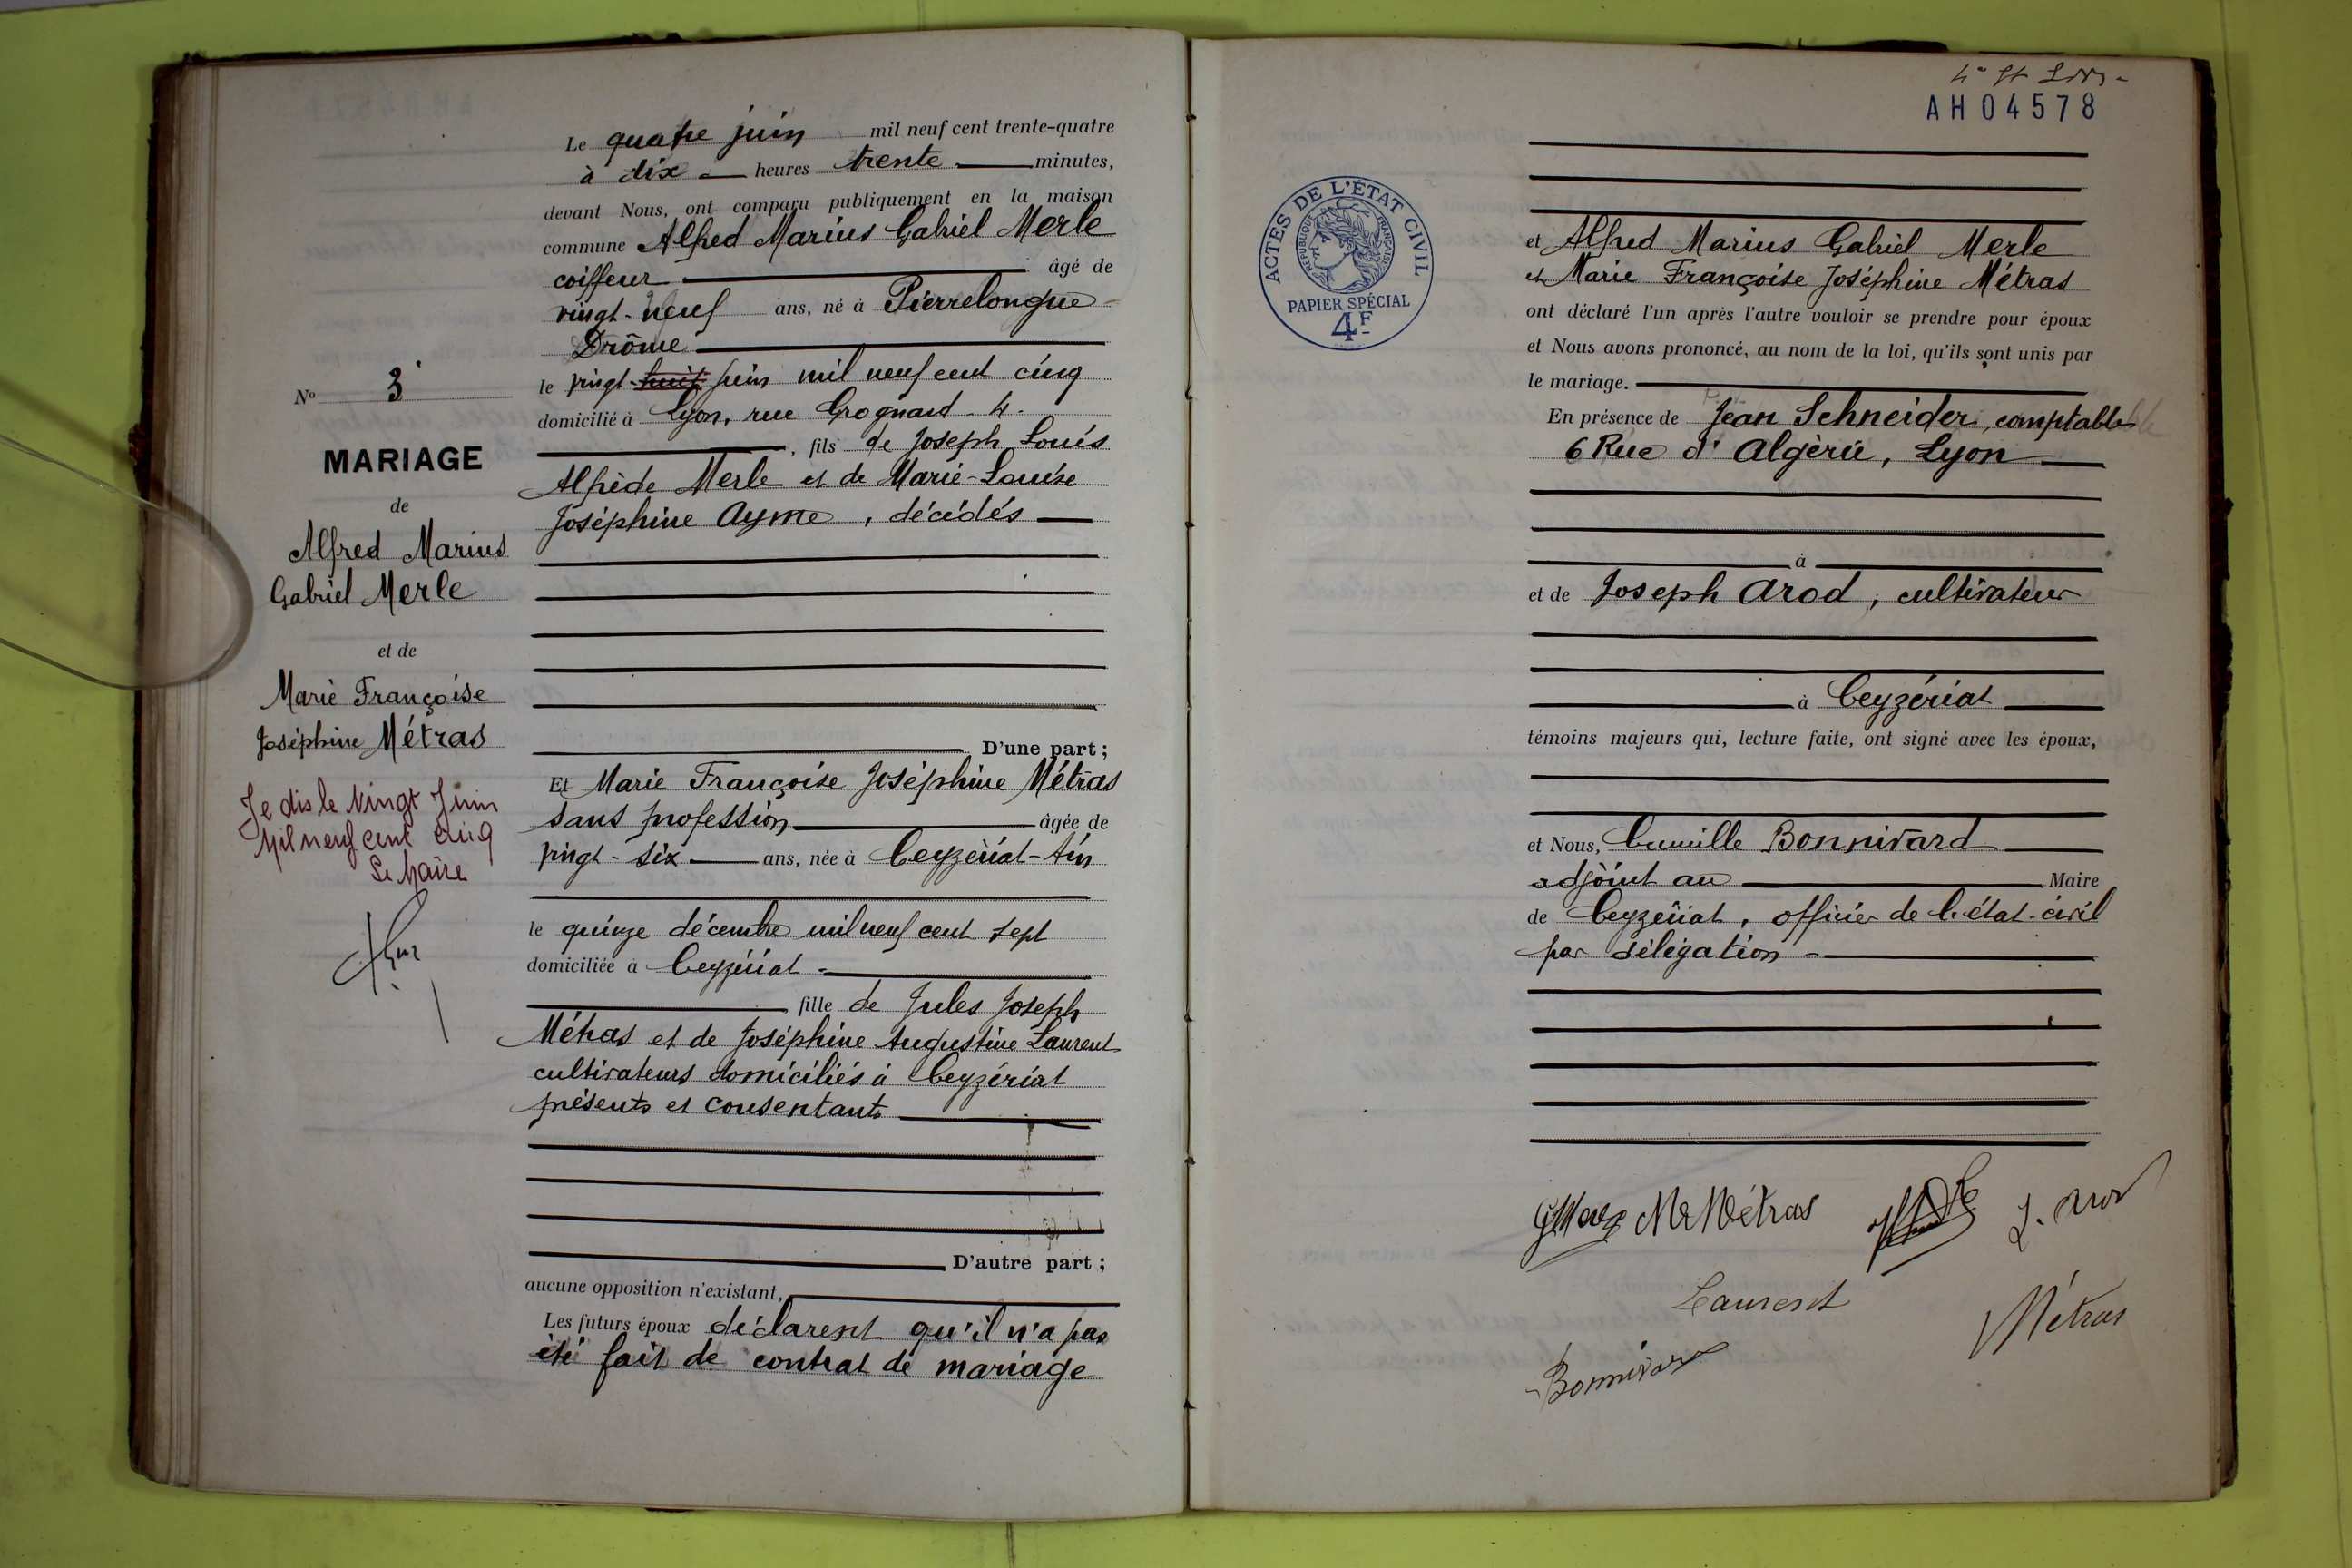 N° 3
MARIAGE
de
Alfred Marius
Gabriel Merle
et de
Marie Françoise
Joséphine Métras
Je dis le Vingt Juin
Mil neuf cent cinq
Le Maire
Le quatre juin mil neuf cent trente-quatre
à dix heures trente minutes,
devant Nous, ont comparu publiquement en la maison
commune Alfred Marius Gabriel Merle
coiffeur âgé de
vingt-neuf ans, né à Pierrelongue
Drôme
le vingt-huit juin mil neuf cent cinq
domicilié à Lyon, rue Grognard - 4.
, fils de Joseph Louis
Alfrède Merle et de Marie-Louise
Joséphine Ayme, décédés
D'une part ;
Et Marie Françoise Joséphine Métras
sans profession âgée de
vingt-six ans, née à Ceyzériat-Ain
le quinze décembre mil neuf cent sept
domiciliée à Ceyzériat -
fille de Jules Joseph
Métras et de Joséphine Augustine Laurent
cultivateurs domiciliés à Ceyzériat
présents et consentants
D'autre part ;
aucune opposition n'existant,
Les futurs époux déclarent qu'il n'a pas
été fait de contrat de mariage
AH04578
ACTES DE L'ÉTAT CIVIL
RÉPUBLIQUE FRANÇAISE
PAPIER SPÉCIAL
4F
et Alfred Marius Gabriel Merle
et Marie Françoise Joséphine Métras
ont déclaré l'un après l'autre vouloir se prendre pour époux
et Nous avons prononcé, au nom de la loi, qu'ils sont unis par
le mariage.
En présence de Jean Schneider, comptable
6 Rue d'Algérie, Lyon
à
et de Joseph Arod, cultivateur
à Ceyzériat
témoins majeurs qui, lecture faite, ont signé avec les époux,
et Nous, Camille Bonnivard
adjoint au Maire
de Ceyzériat, officier de l'état-civil
par délégation -
M Métras
J. Arod
Laurent
Métras
Bonnivard